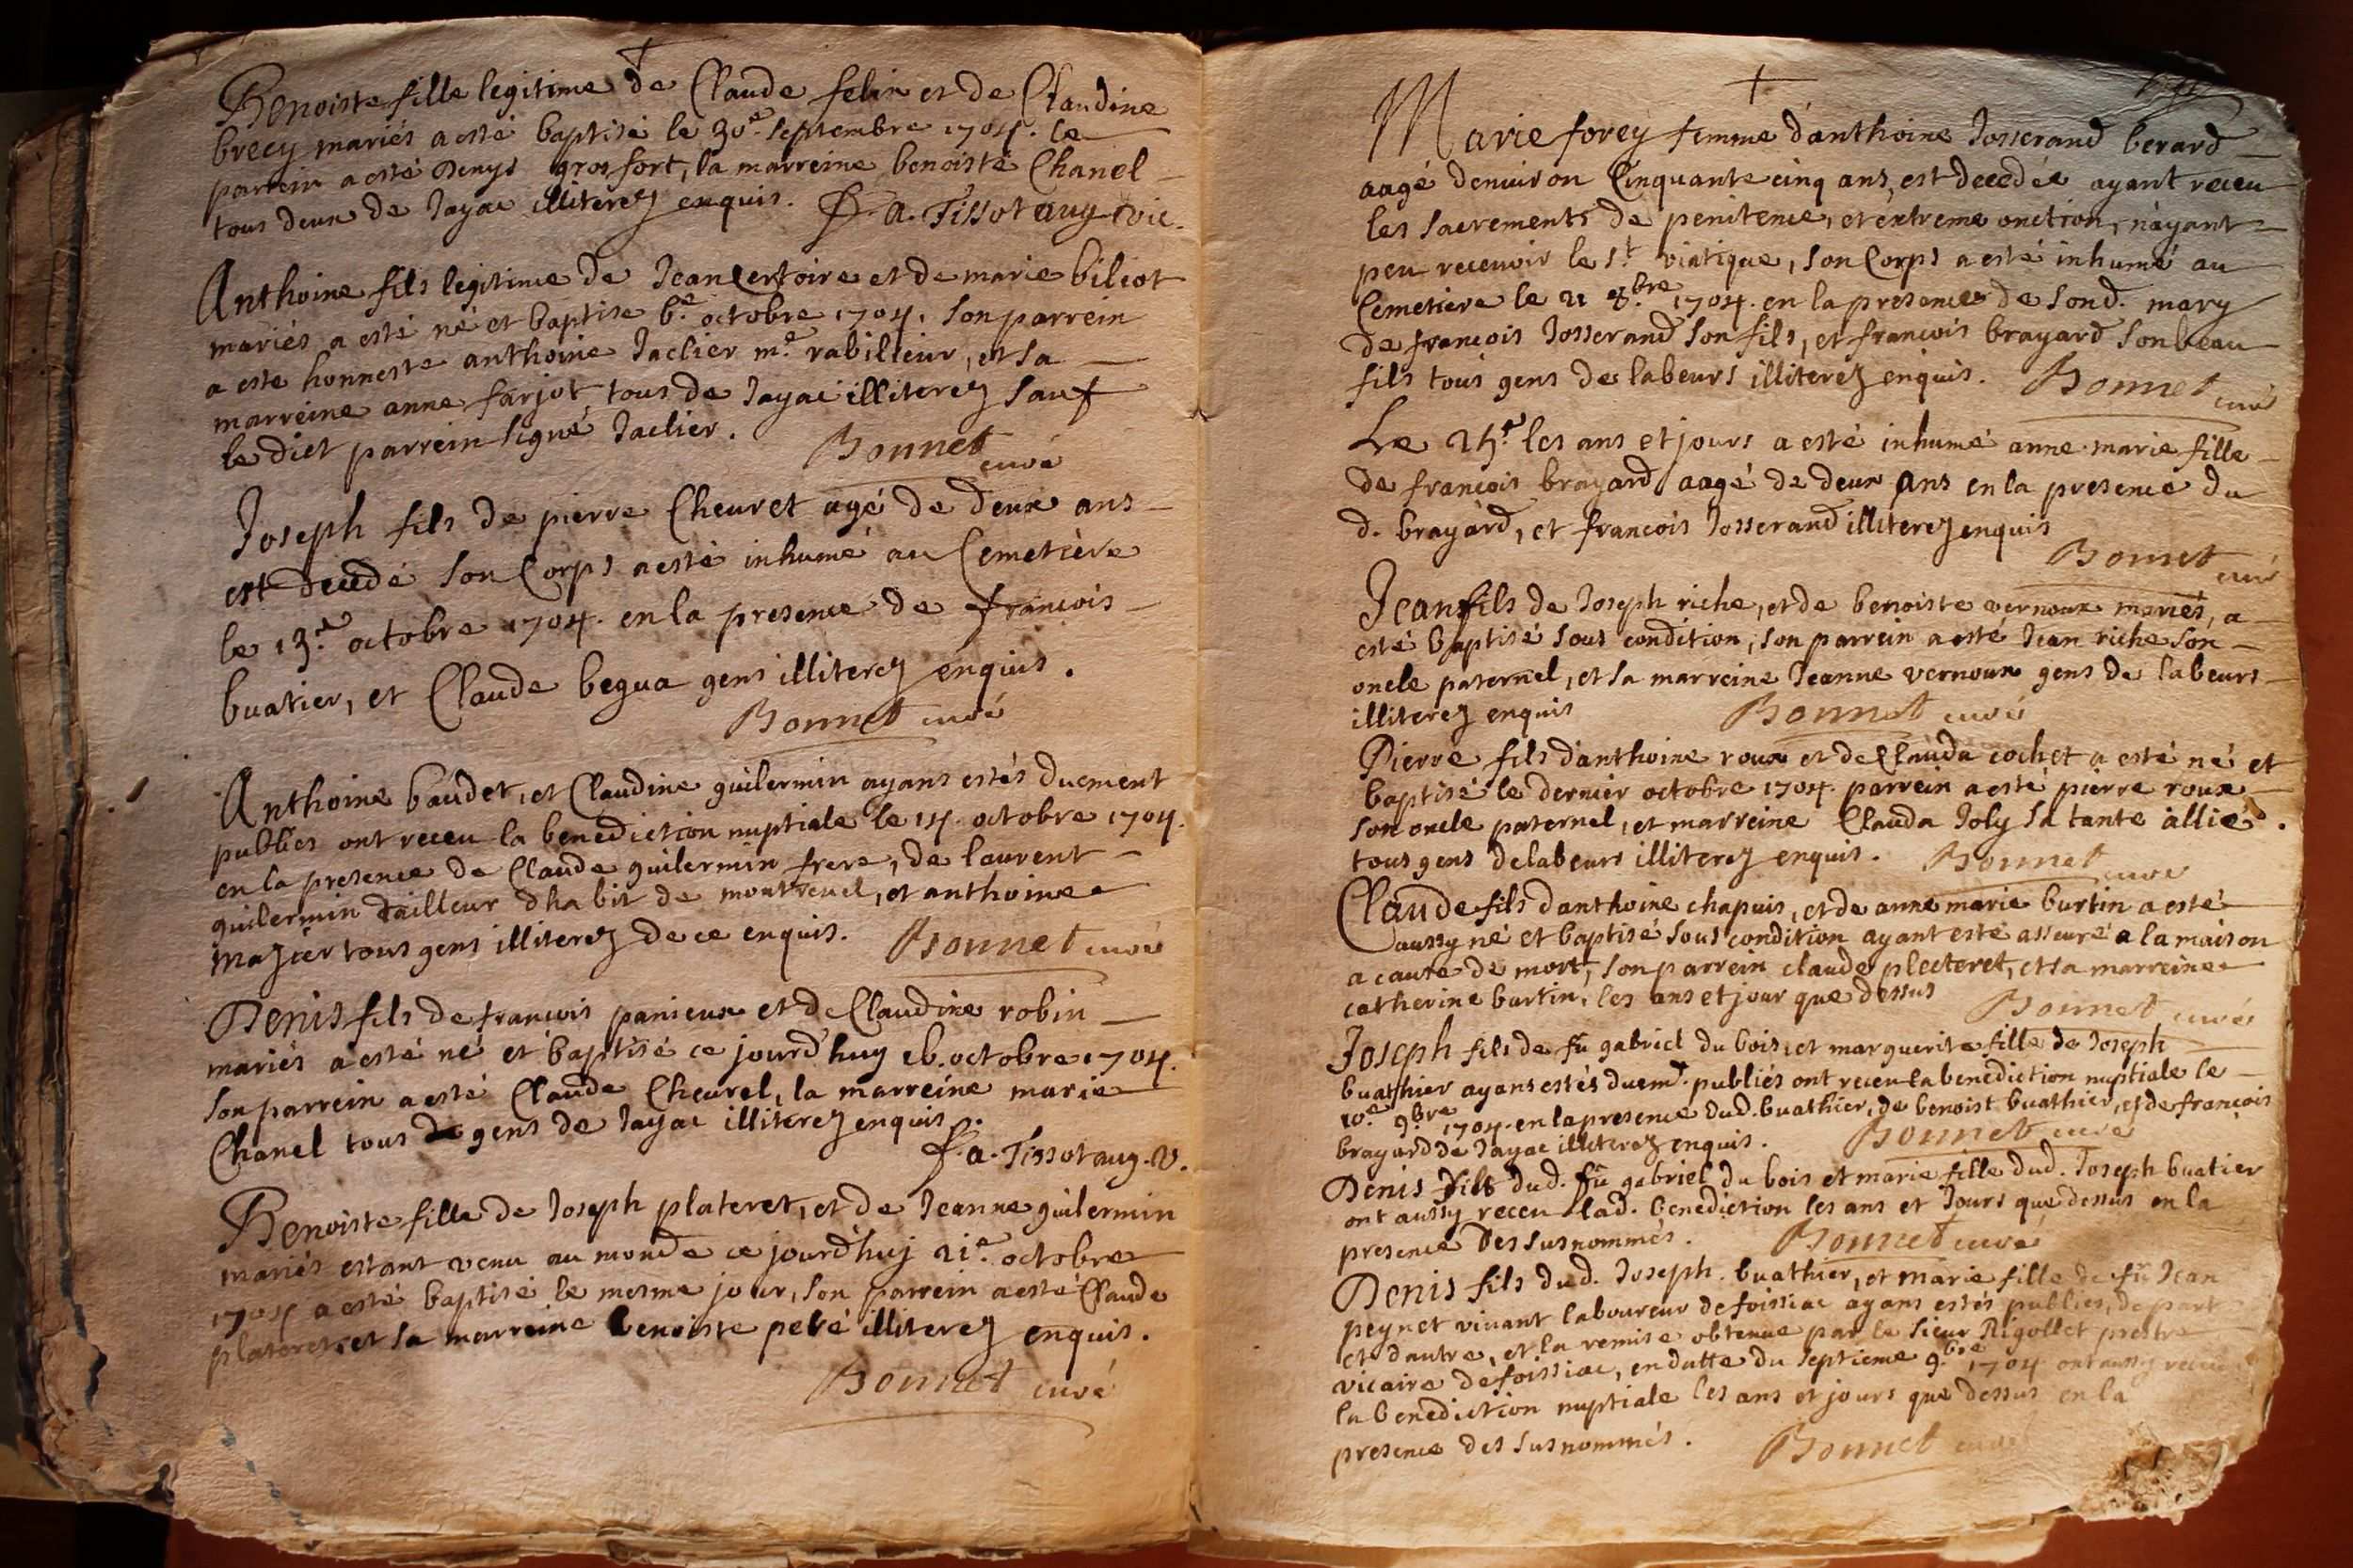 Benoiste fille legitime de Claude felin et de Claudine
brecy mariés a esté baptisé le 30e. septembre 1704. le
parrein a esté Denys grosfort, la marreine benoiste Chanel
tous deux de Jayac illiterez enquis. F. a. Tissot aug. vic.
Anthoine fils legitime de Jean Certoire et de marie biliot
mariés a esté né et baptise 6e. octobre 1704. Son parrein
a este honneste anthoine Jaclier me. rabilieur, et sa
marreine anne farjot tous de Jayac illiterez sauf
le dict parrein signé Jaclier. Bonnet curé
Joseph fils de pierre Cheuret agé de deux ans
est decedé son Corps a esté inhumé au Cemetière
le 13.e octobre 1704. en la presence de francois
buatier, et Claude begua gens illiterez enquis.
Bonnet curé
Anthoine baudet, et Claudine guilermin ayans estés duement
publies ont receu la benediction nuptiale le 14. octobre 1704.
en la presence de Claude guilermin frere, de laurent
guilermin tailleur dhabit de montreuel, et anthoine
mazier tous gens illiterez de ce enquis. Bonnet curé
Denis fils de francois panieux et de Claudine robin
mariés a esté né et baptisé ce jourd'huy 16. octobre 1704.
son parrein a esté Claude Cheurel, la marreine marie
Chanel tous gens de Jayac illiterez enquis.
F. a. Tissot aug. v.
Benoiste fille de Joseph plateret, et de Jeanne guilermin
mariés estant venu au monde ce jourd'huj 21e. octobre
1704 a esté baptisé le mesme jour, son parrein a esté Claude
plateret, et sa marreine benoiste pelé illiterez enquis.
Bonnet curé
Marie forey femme d'anthoine Josserand berard
aagé denuiron Cinquante cinq ans, est decedée ayant receu
les sacrements de penitence, et éxtreme onction, n'ayant
peu receuoir le st. viatique, son Corps a esté inhumé au
Cemetiere le 21 8.bre 1704. en la presence de sond. mary
de francois Josserand son fils, et francois brayard son beau
fils tous gens de labeurs illiterez enquis. Bonnet curé
Le 25.e les ans et jours a esté inhumé anne marie fille
de francois brayard aagé de deux ans en la presence du
d. brayard, et francois Josserand illiterez enquis
Bonnet curé
Jean fils de Joseph riche, et de benoiste vernoux mariés, a
esté baptisé sous condition, son parrein a esté Jean riche son
oncle paternel, et sa marreine Jeanne vernoux gens de labeurs
illiterez enquis Bonnet curé
Pierre fils d'anthoine roux et de Clauda cochet a esté né et
baptisé le dernier octobre 1704. parrein a esté pierre roux
son oncle paternel, et marreine Clauda Joly sa tante allie.
tous gens de labeurs illiterez enquis. Bonnet curé
Claude fils danthoine chapuis, et de anne marie burtin a esté
aussy né et baptisé sous condition ayant esté asseuré a la maison
a cause de mort, son parrein claude plecteret, et sa marreine
catherine burtin, les ans et jour que dessus Bonnet curé
Joseph fils de fu gabriel du bois, et marguerite fille de Joseph
buathier ayans estés duemt. publiés ont receu la benediction nuptiale le
10.e 9.bre 1704. en la presence dud. buathier, de benoist buathier, et de francois
brayard de Jayac illiterez enquis. Bonnet curé
Denis fils dud. fu gabriel du bois et marie fille dud. Joseph buatier
ont aussy receu lad. benediction les ans et Jours que dessus en la
presence des susnommés. Bonnet curé
Denis fils dud. Joseph buathier, et marie fille de fu Jean
peynet viuant laboureur de foissiac ayans estés publies, de part
et dautre, et la remise obtenue par le sieur Rigollet prestre
vicaire de foissiac, en datte du septieme 9.bre 1704 ont aussy receu
la benediction nuptiale les ans et jours que dessus en la
presence des susnommés. Bonnet curé